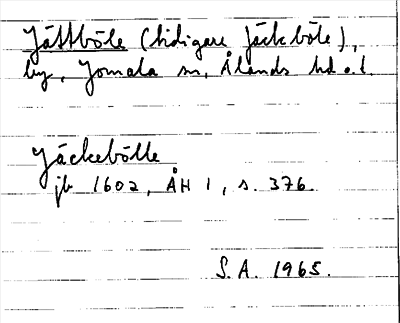 Jättböle (tidigare Jäckböle),
by, Jomala sn, Ålands hd o. l.
Jäckebölle
jb 1602, ÅH 1, s. 376.
S.A. 1965.